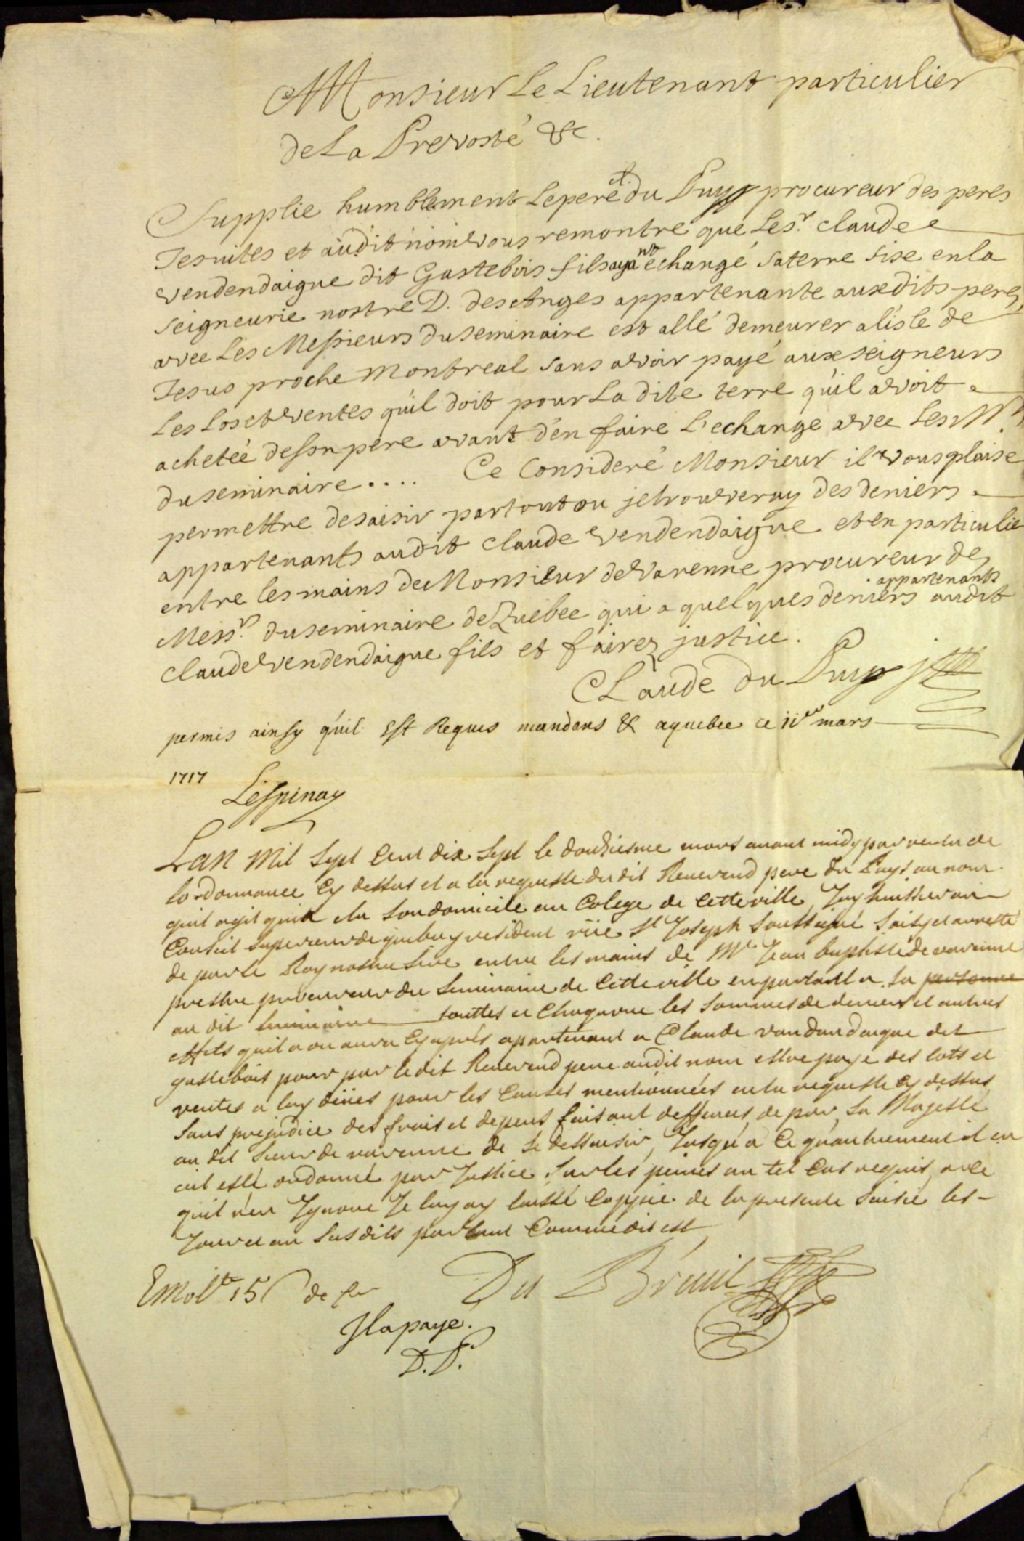 Monsieur Le Lieutenant particulier
de La Prevosté &c.
Supplie humblement Lepere du Puy procureur des peres
Jesuites et audit nom vous remontre que Le Sr. claude
vendendaigue dit Gastebois fils ayant echangé sa terre sise en la
seigneurie nostre D. des Anges appartenante auxdits peres,
avec Les Messieurs du seminaire est allé demeurer a lisle de
Jesus proche Montreal sans avoir payé aux seigneurs
Les Los et ventes qu'il doit pour La dite terre qu'il avoit
achetée de son pere avant d'en faire L'echange avec Les Mrs
du seminaire .... Ce Consideré Monsieur il vous plaise
permettre de saisir partout ou je trouveray des deniers
appartenants audit claude vendendaigue et en particulie
entre les mains de Monsieur de Varenne procureur de
Messrs. du seminaire de Quebec qui a quelques deniers appartenants audit
claude vendendaigue fils et faires justice.
CLaude Du Puy j
permis ainsy qu'il Est Requis mandons & a quebec ce 11e mars
1717
Lespinay
Lan Mil Sept Cent dix Sept le douziesme mars avant midy par vertu de
lordonnance Cy dessus et a la requeste dudit Reverend pere Du Puys au nom
quil agit qui a elu son domicile au Colege de Cette ville, Jay huissier au
Conseil Superieur de quebec y resident rüe St Joseph Soussigné Saisy et arresté
de par le Roy nostre Sire entre les mains de Mr Jean baptiste de varenne
prestre procureur du Seminaire de Cette ville en parlant a Sa personne
au dit Seminaire touttes et Chaqunne les Sommes de deniers et autres
effets quil a ou aura Cy apres apartenant a Claude vandandaigue dit
gastebois pour par le dit Reverend pere audit nom estre payé des lots et
ventes a luy deües pour les Causes mentionnées en la requeste Cy dessus
Sans prejudice des frais et depens faisant deffences de par Sa Majesté
au dit Sieur de varenne de Se dessaisir, Jusqu'a Ce qu'autrement il en
ait esté ordonné par Justice Sur les peines au tel Cas requis, a Ce
quil n'en Ignore Je luy ay laissé Coppie de la presente Saisie les
Jour et an Susdits parlant Comme dit est
Emolt 15 s de fr Du Bréuil
Jl a paye.
D. P.